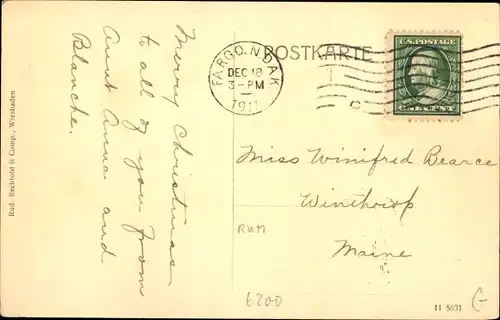 Merry Christmas
to all of you from
Aunt Anna and
Blanche.
Rud. Bechhold & Comp., Wiesbaden
POSTKARTE
FARGO, N. DAK.
DEC 18
3-PM
1911
U.S. POSTAGE
Miss Winifred Bearce
Winthrop
Maine
RHM
6200
11 5631
G